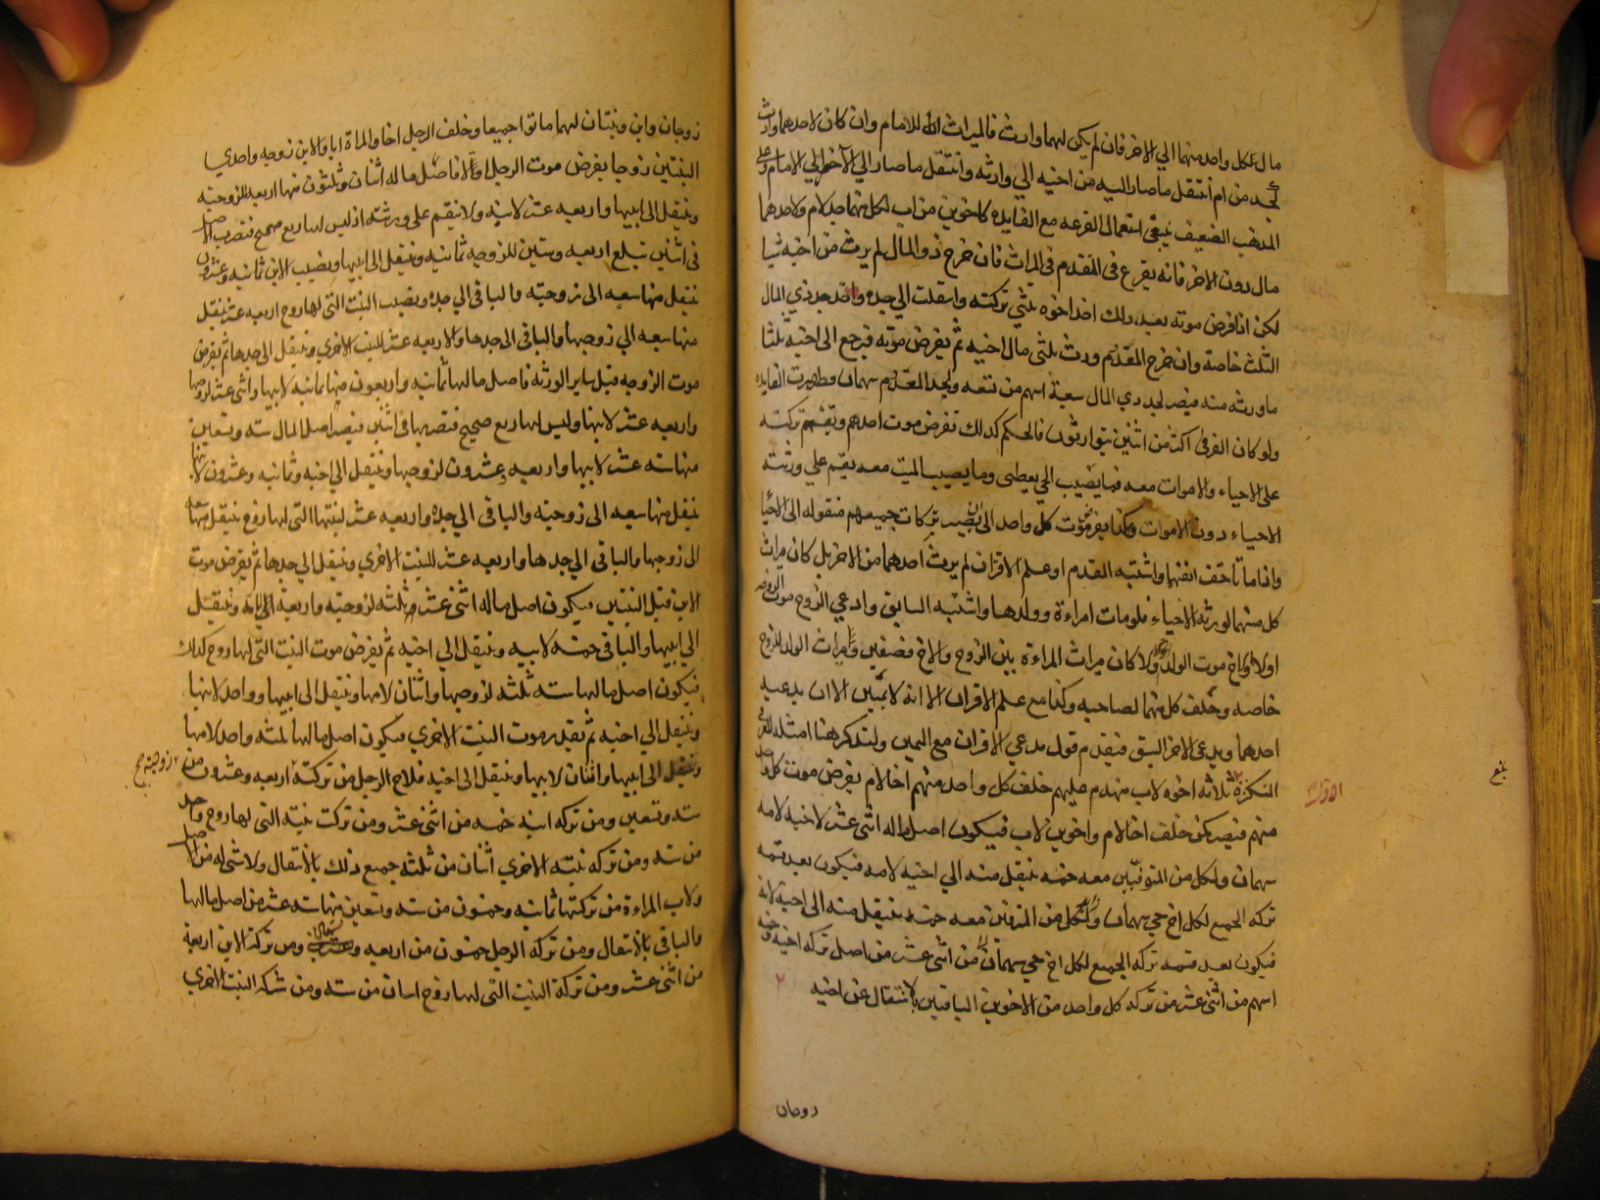 مال كل واحد منهما الي الاخر فان لم يكن لهما وارث فالميراث للامام وان كان لاحدهما وارث
كجد من ام انتقل ما صار اليه من اخيه الي وارثه وانتقل ما صار الي الآخر الي الامام وعلي
المذهب الضعيف ينبغي استعمال القرعه مع الفايده كاخوين من اب لكل منهما جد لام ولاحدهما
مال دون الاخر فانه يقرع في المتقدم في الميراث فان خرج ذو المال لم يرث من اخيه شيا
لكن اذا فرض موته بعد ذلك اخذ اخوه ثلثي تركته وانتقلت الي جده واخذ جد ذي المال
الثلث خاصة وان خرج المعدم ورث ثلثي مال اخيه ثم يفرض موته فيرجع الي اخيه ثلثا
ما ورثه منه فيصير لجد ذي المال سبعة اسهم من تسعه ولجد المعدم سهمان وظهرت الفايده
ولو كان الغرقي اكثر من اثنين يتوارثون فالحكم كذلك تفرض موت احدهم ويقسم تركته
علي الاحياء والاموات معه فما يصيب الحي يعطي وما يصيب الميت معه يقسم علي ورثته
الاحياء دون الاموات وكذا يفرض موت كل واحد الي ان يصير تركات جميعهم منقوله الي الاحيا
واذا ماتا حتف انفهما واشتبه المتقدم او علم الاقتران لم يرث احدهما من الاخر بل كان ميراث
كل منهما لورثته الاحياء فلو مات امراءة وولدها واشتبه السابق وادعي الزوج موت الزوجه
اولا والاخ موت الولد اولا كان ميراث المراءة بين الزوج والاخ نصفين وميراث الولد للزوج
خاصه وحلف كل منهما لصاحبه وكذا مع علم الاقتران الا انه لا يمين الا ان يدعيه
احدهما ويدعي الاخر السبق فيقدم قول مدعي الاقتران مع اليمين ولنذكر هنا امثله للغرقي
المتكثرة ثلاثه اخوه لاب منهدم عليهم خلف كل واحد منهم اخا لام يفرض موت كل واحد
الاول
منهم فيصير كمن خلف اخا لام واخوين لاب فيكون اصل ماله اثني عشر لاخيه لامه
سهمان ولكل من المتوفيين معه خمسه ينتقل منه الي اخيه لامه فيكون بعد قسمه
تركه الجميع لكل اخ حي سهمان ولكل من المتوفين معه خمسه ينتقل منه الي اخيه لامه
فيكون بعد قسمه تركه الجميع لكل اخ حي سهمان من اثني عشر من اصل تركه اخيه وخمسه
اسهم من اثني عشر من تركه كل واحد من الاخوين الباقيين بالانتقال عن اخيه
٢
زوجان
بلغ
زوجان وابن وبنتان لهما ماتوا جميعا وخلف الرجل اخا والمراة ابا والابن زوجه واحدي
البنتين زوجا يفرض موت الرجل اولا فاصل ماله اثنان وثلثون منها اربعه للزوجه
وينتقل الي ابيها واربعه عشر لابنه ولا ينقسم علي ورثته اذ ليس لها ربع صحيح فتضرب الاصل
في اثنين تبلغ اربعه وستين للزوجه ثمانيه وينتقل الي ابيها ونصيب الابن ثمانيه وعشرون
ينتقل منها سبعه الي زوجته والباقي الي جده ونصيب البنت التي لها زوج اربعه عشر ينتقل
منها سبعه الي زوجها والباقي الي جدها والاربعه عشر للبنت الاخري وينتقل الي جدها ثم يفرض
موت الزوجه قبل ساير الورثه فاصل مالها ثمانيه واربعون منها ثمانية لابيها واثني عشر لزوجها
واربعه عشر لابنها وليس لها ربع صحيح فتضربها في اثنين فيصير اصل المال سته وتسعين
منها سته عشر لابيها واربعه وعشرون لزوجها وينتقل الي اخيه وثمانيه وعشرون لابنها
ينتقل منها سبعه الي زوجته والباقي الي جده واربعه عشر لبنتها التي لها زوج ينتقل منها سبعه
الي زوجها والباقي الي جدها واربعه عشر للبنت الاخري وينتقل الي جدها ثم يفرض موت
الابن قبل البنتين فيكون اصل ماله اثني عشر ثلثه لزوجته واربعة الي امه وينتقل
الي ابيها والباقي خمسه لابيه وينتقل الي اخيه ثم يفرض موت البنت التي لها زوج كذلك
فيكون اصل مالها سته ثلثه لزوجها واثنان لامها وينتقل الي ابيها وواحد لابيها
وينتقل الي اخيه ثم تقدر موت البنت الاخري فيكون اصل مالها ثلثه واحد لامها
وينتقل الي ابيها واثنان لابيها وينتقل الي اخيه فلاخ الرجل من تركة اربعه وعشرون من
زوجته صح
سته وتسعين ومن تركه ابنه خمسه من اثني عشر ومن تركت بنته التي لها زوج واحد
من سته ومن تركه بنته الاخري اثنان من ثلثه جميع ذلك بالانتقال ولا شي له من الاصل
ولاب المراءة من تركتها ثمانيه وخمسون من سته وتسعين منها سته عشر من اصل مالها
والباقي بالانتقال ومن تركه الرجل خمسون من اربعه وستين ومن تركة الابن اربعة
من اثني عشر ومن تركة البنت التي لها زوج اثنان من سته ومن تركه البنت الاخري